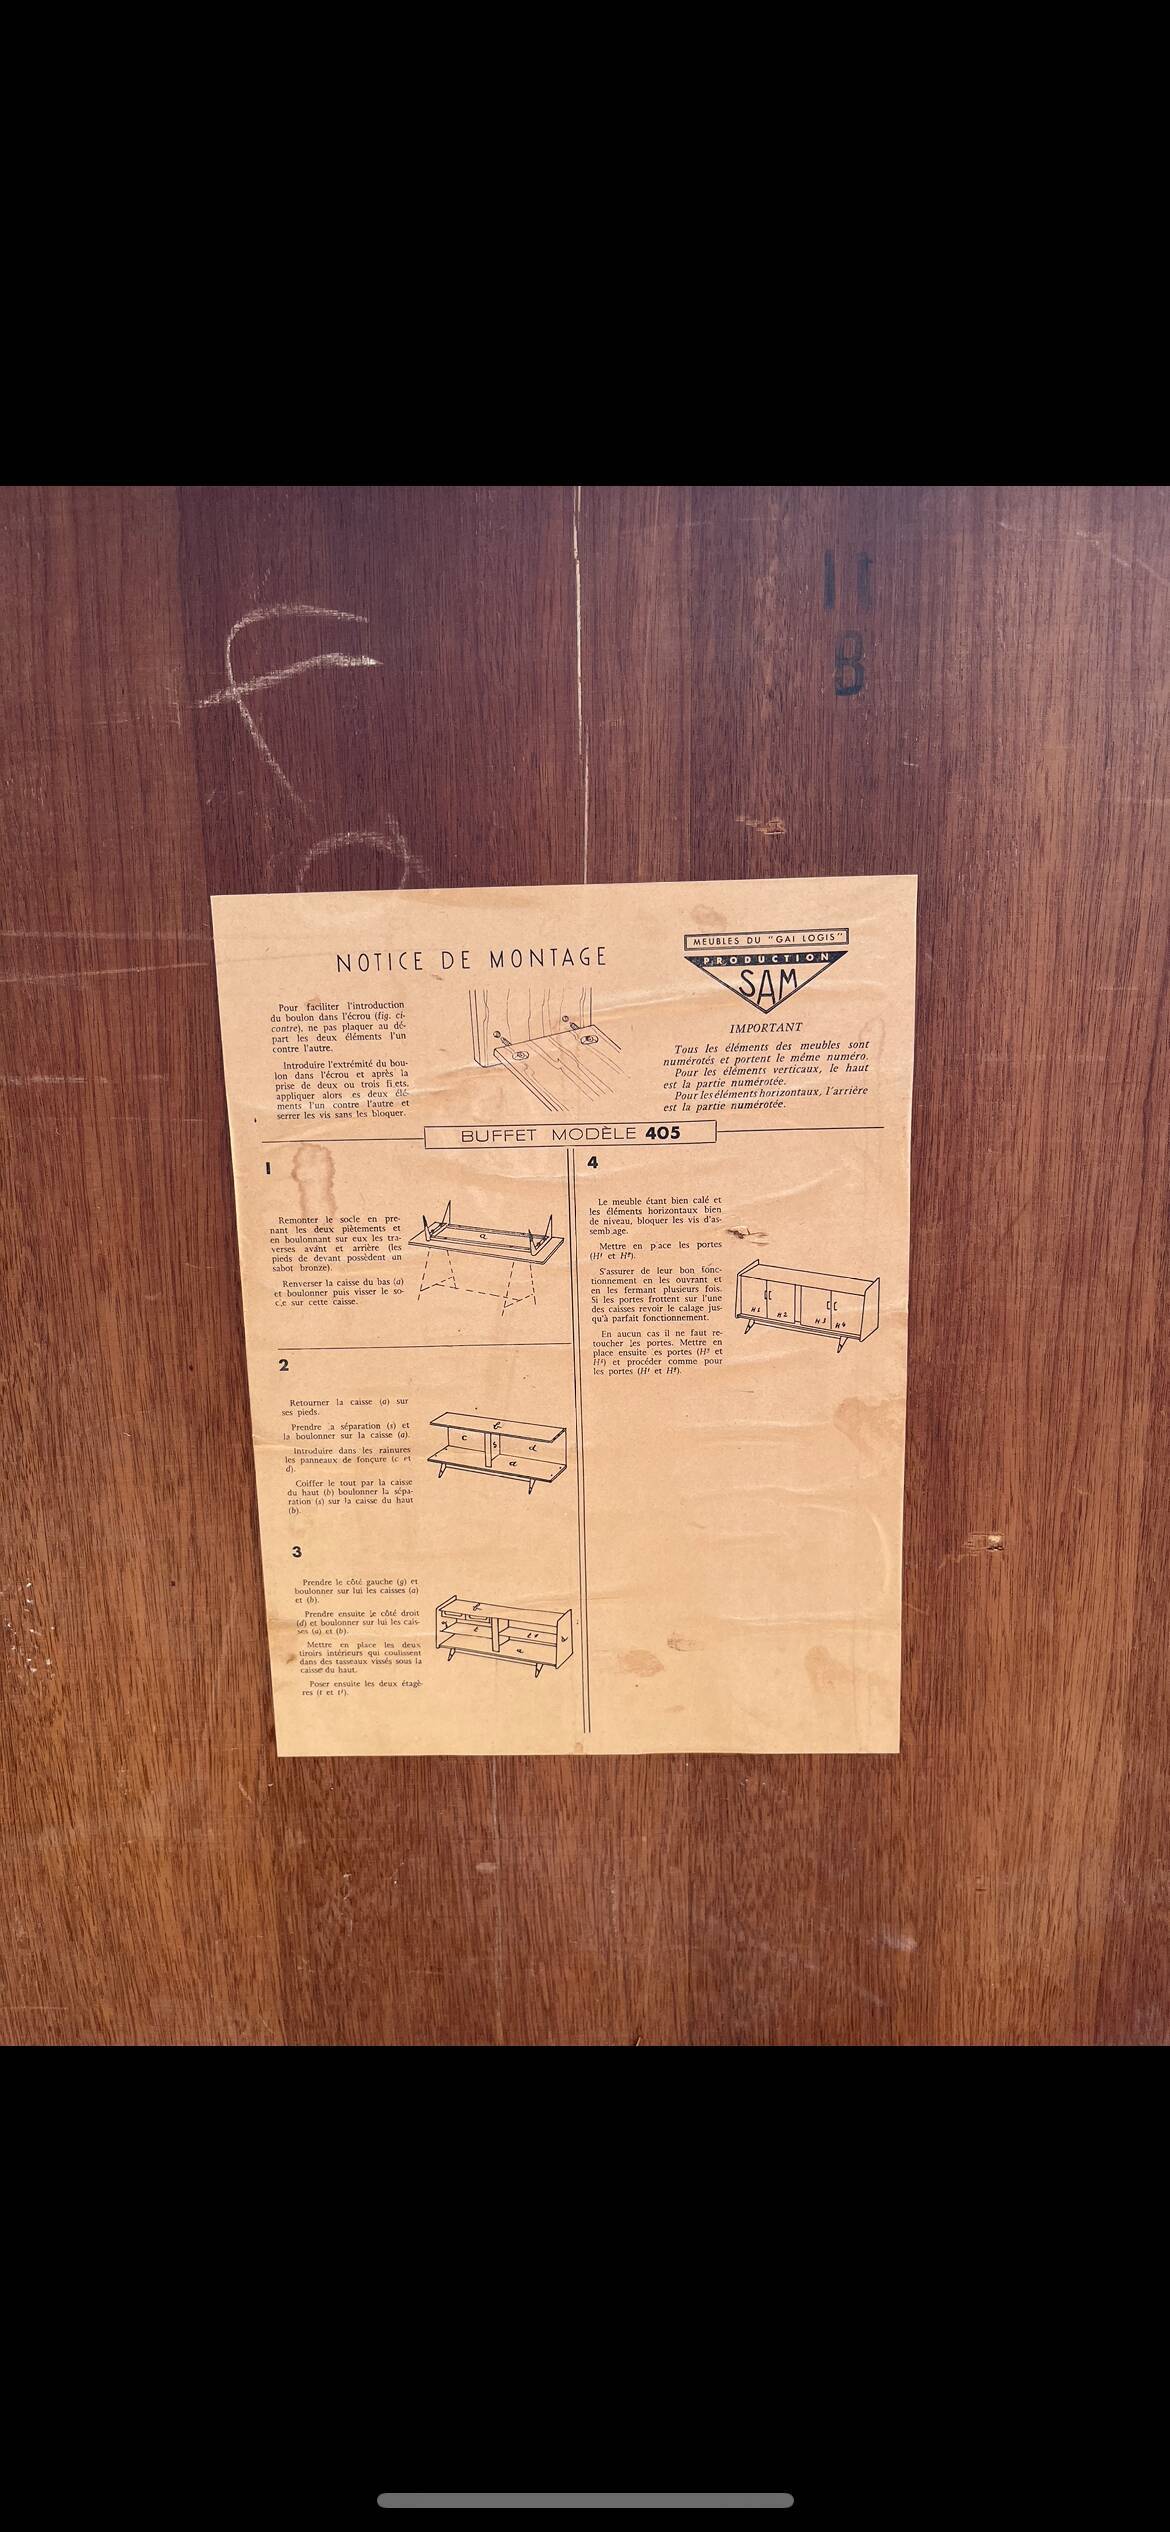 11
8
NOTICE DE MONTAGE
Pour faciliter l'introduction
du boulon dans l'écrou (fig. ci-
contre), ne pas plaquer au dé-
part les deux éléments l'un
contre l'autre.
Introduire l'extrémité du bou-
lon dans l'écrou et après la
prise de deux ou trois filets,
appliquer alors es deux élé-
ments l'un contre l'autre et
serrer les vis sans les bloquer.
MEUBLES DU "GAI LOGIS"
PRODUCTION
SAM
IMPORTANT
Tous les éléments des meubles sont
numérotés et portent le même numéro.
Pour les éléments verticaux, le haut
est la partie numérotée.
Pour les éléments horizontaux, l'arrière
est la partie numérotée.
BUFFET MODÈLE 405
1
Remonter le socle en pre-
nant les deux piètements et
en boulonnant sur eux les tra-
verses avant et arrière (les
pieds de devant possèdent un
sabot bronze).
Renverser la caisse du bas (a)
et boulonner puis visser le so-
cle sur cette caisse.
a
2
Retourner la caisse (a) sur
ses pieds.
Prendre la séparation (s) et
la boulonner sur la caisse (a).
Introduire dans les rainures
les panneaux de fonçure (c et
d).
Coiffer le tout par la caisse
du haut (b) boulonner la sépa-
ration (s) sur la caisse du haut
(b).
b
c s d
a
3
Prendre le côté gauche (g) et
boulonner sur lui les caisses (a)
et (b).
Prendre ensuite le côté droit
(d) et boulonner sur lui les cais-
ses (a) et (b).
Mettre en place les deux
tiroirs intérieurs qui coulissent
dans des tasseaux vissés sous la
caisse du haut.
Poser ensuite les deux étagè-
res (t et t¹).
b
g t t¹ d
a
4
Le meuble étant bien calé et
les éléments horizontaux bien
de niveau, bloquer les vis d'as-
semb age.
Mettre en place les portes
(H¹ et H²).
S'assurer de leur bon fonc-
tionnement en les ouvrant et
en les fermant plusieurs fois.
Si les portes frottent sur l'une
des caisses revoir le calage jus-
qu'à parfait fonctionnement.
En aucun cas il ne faut re-
toucher les portes. Mettre en
place ensuite es portes (H³ et
H⁴) et procéder comme pour
les portes (H¹ et H²).
H1 H2 H3 H4